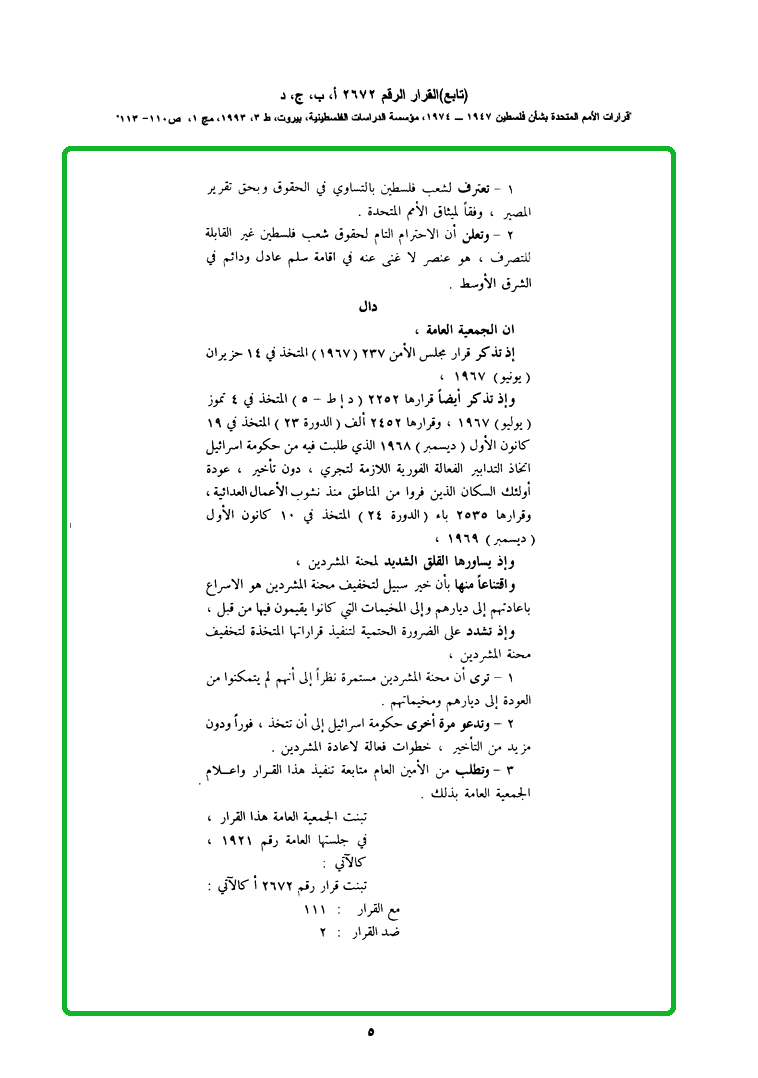 (تابع)القرار الرقم ٢٦٧٢ أ، ب، ج، د
"قرارات الأمم المتحدة بشأن فلسطين ١٩٤٧ ــ ١٩٧٤، مؤسسة الدراسات الفلسطينية، بيروت، ط ٣، ١٩٩٣، مج ١، ص١١٠- ١١٣"
١ – تعترف لشعب فلسطين بالتساوي في الحقوق وبحق تقرير
المصير ، وفقاً لميثاق الأمم المتحدة .
٢ – وتعلن أن الاحترام التام لحقوق شعب فلسطين غير القابلة
للتصرف ، هو عنصر لا غنى عنه في اقامة سلم عادل ودائم في
الشرق الأوسط .
دال
ان الجمعية العامة ،
إذ تذكر قرار مجلس الأمن ٢٣٧ (١٩٦٧) المتخذ في ١٤ حزيران
( يونيو) ١٩٦٧ ،
وإذ تذكر أيضاً قرارها ٢٢٥٢ ( د إ ط – ٥ ) المتخذ في ٤ تموز
( يوليو) ١٩٦٧ ، وقرارها ٢٤٥٢ ألف ( الدورة ٢٣ ) المتخذ في ١٩
كانون الأول ( ديسمبر ) ١٩٦٨ الذي طلبت فيه من حكومة اسرائيل
اتخاذ التدابير الفعالة الفورية اللازمة لتجري ، دون تأخير ، عودة
أولئك السكان الذين فروا من المناطق منذ نشوب الأعمال العدائية ،
وقرارها ٢٥٣٥ باء ( الدورة ٢٤ ) المتخذ في ١٠ كانون الأول
( ديسمبر ) ١٩٦٩ ،
وإذ يساورها القلق الشديد لمحنة المشردين ،
واقتناعاً منها بأن خير سبيل لتخفيف محنة المشردين هو الاسراع
باعادتهم إلى ديارهم وإلى المخيمات التي كانوا يقيمون فيها من قبل ،
وإذ تشدد على الضرورة الحتمية لتنفيذ قراراتها المتخذة لتخفيف
محنة المشردين ،
١ – ترى أن محنة المشردين مستمرة نظراً إلى أنهم لم يتمكنوا من
العودة إلى ديارهم ومخيماتهم .
٢ – وتدعو مرة أخرى حكومة اسرائيل إلى أن تتخذ ، فوراً ودون
مزيد من التأخير ، خطوات فعالة لاعادة المشردين .
٣ – وتطلب من الأمين العام متابعة تنفيذ هذا القرار واعلام
الجمعية العامة بذلك .
تبنت الجمعية العامة هذا القرار ،
في جلستها العامة رقم ١٩٢١ ،
كالآتي :
تبنت قرار رقم ٢٦٧٢ أ كالآتي :
مع القرار : ١١١
ضد القرار : ٢
٥